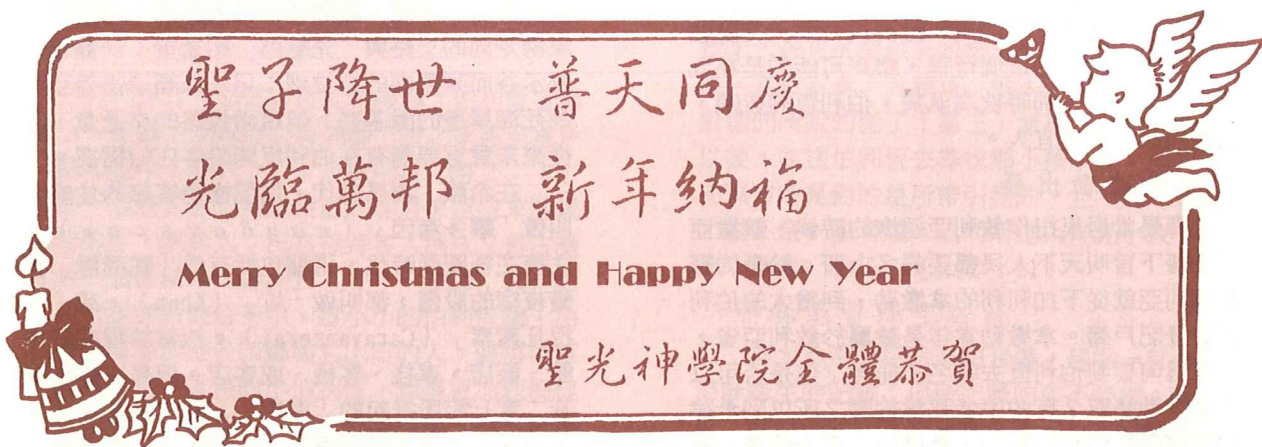 聖子降世 普天同慶
光臨萬邦 新年納福
Merry Christmas and Happy New Year
聖光神學院全體恭賀